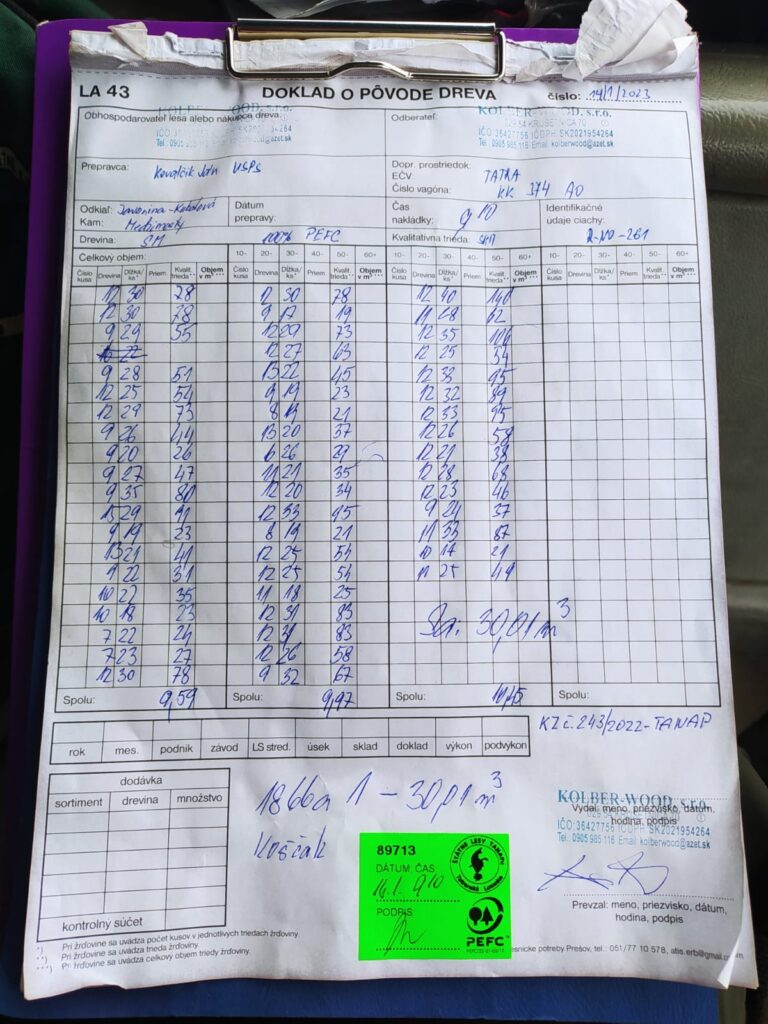 LA 43 DOKLAD O PÔVODE DREVA číslo: 14/1/2023
Obhospodarovateľ lesa alebo nákupca dreva:
KOLBER-WOOD, s.r.o.
IČO: 36427756 IČ DPH: SK2021954264
Tel.: 0905 985 116 Email: kolberwood@azet.sk
Odberateľ:
KOLBER-WOOD, s.r.o.
IČO: 36427756 IČ DPH: SK2021954264
Tel.: 0905 985 116 Email: kolberwood@azet.sk
Prepravca:
Dopr. prostriedok: TATRA
EČV:
Číslo vagóna: KK 374 AO
Odkiaľ: Javorina-
Kam:
Dátum prepravy:
Čas nakládky: 9 10
Identifikačné údaje ciachy:
Drevina: SM 100% PEFC Kvalitatívna trieda:
Celkový objem: 10- 20- 30- 40- 50- 60+ 10- 20- 30- 40- 50- 60+ 10- 20- 30- 40- 50- 60+
Číslo kusa Drevina Dĺžka/ks* Priem. Kvalit. trieda** Objem v m³*** Číslo kusa Drevina Dĺžka/ks* Priem. Kvalit. trieda** Objem v m³*** Číslo kusa Drevina Dĺžka/ks* Priem. Kvalit. trieda** Objem v m³*** Číslo kusa Drevina Dĺžka/ks* Priem. Kvalit. trieda** Objem v m³***
12 30 78 12 30 78 12 40 140
12 30 78 9 17 19 11 28 62
9 29 55 12 29 73 12 35 106
12 27 63 12 25 54
9 28 51 13 22 45 12 33 95
12 25 54 9 19 23 12 32 89
12 29 73 8 19 21 12 33 95
9 26 44 13 20 37 12 26 58
9 20 26 6 26 29 12 21 38
9 27 47 11 21 35 12 28 68
9 35 80 12 20 34 12 23 46
15 29 91 12 33 95 9 24 37
9 19 23 8 19 21 11 33 87
13 21 41 12 25 54 10 17 21
9 22 31 12 25 54 11 25 49
10 22 35 11 18 25
10 18 23 12 31 83
7 22 24 12 31 83
7 23 27 12 26 58
12 30 78 9 32 67
Sa: 30,01 m³
Spolu: 9,59 Spolu: 9,97 Spolu: 10,45 Spolu:
KZ č. 243/2022-TANAP
rok mes. podnik závod LS stred. úsek sklad doklad výkon podvýkon
dodávka
sortiment drevina množstvo
kontrolný súčet
1866a 1 - 30,01 m³
Koščak
89713
DÁTUM ČAS
14.1. 9 10
PODPIS:
ŠTÁTNE LESY TANAPu
Tatranská Lomnica
PEFC
KOLBER-WOOD, s.r.o.
Vydal: meno, priezvisko, dátum, hodina, podpis
IČO: 36427756 IČ DPH: SK2021954264
Tel.: 0905 985 116 Email: kolberwood@azet.sk
Prevzal: meno, priezvisko, dátum, hodina, podpis
*) Pri žrďovine sa uvádza počet kusov v jednotlivých triedach žrďoviny.
**) Pri žrďovine sa uvádza trieda žrďoviny.
***) Pri žrďovine sa uvádza celkový objem triedy žrďoviny.
esnícke potreby Prešov, tel.: 051/77 10 578, atis.erb@gmail.